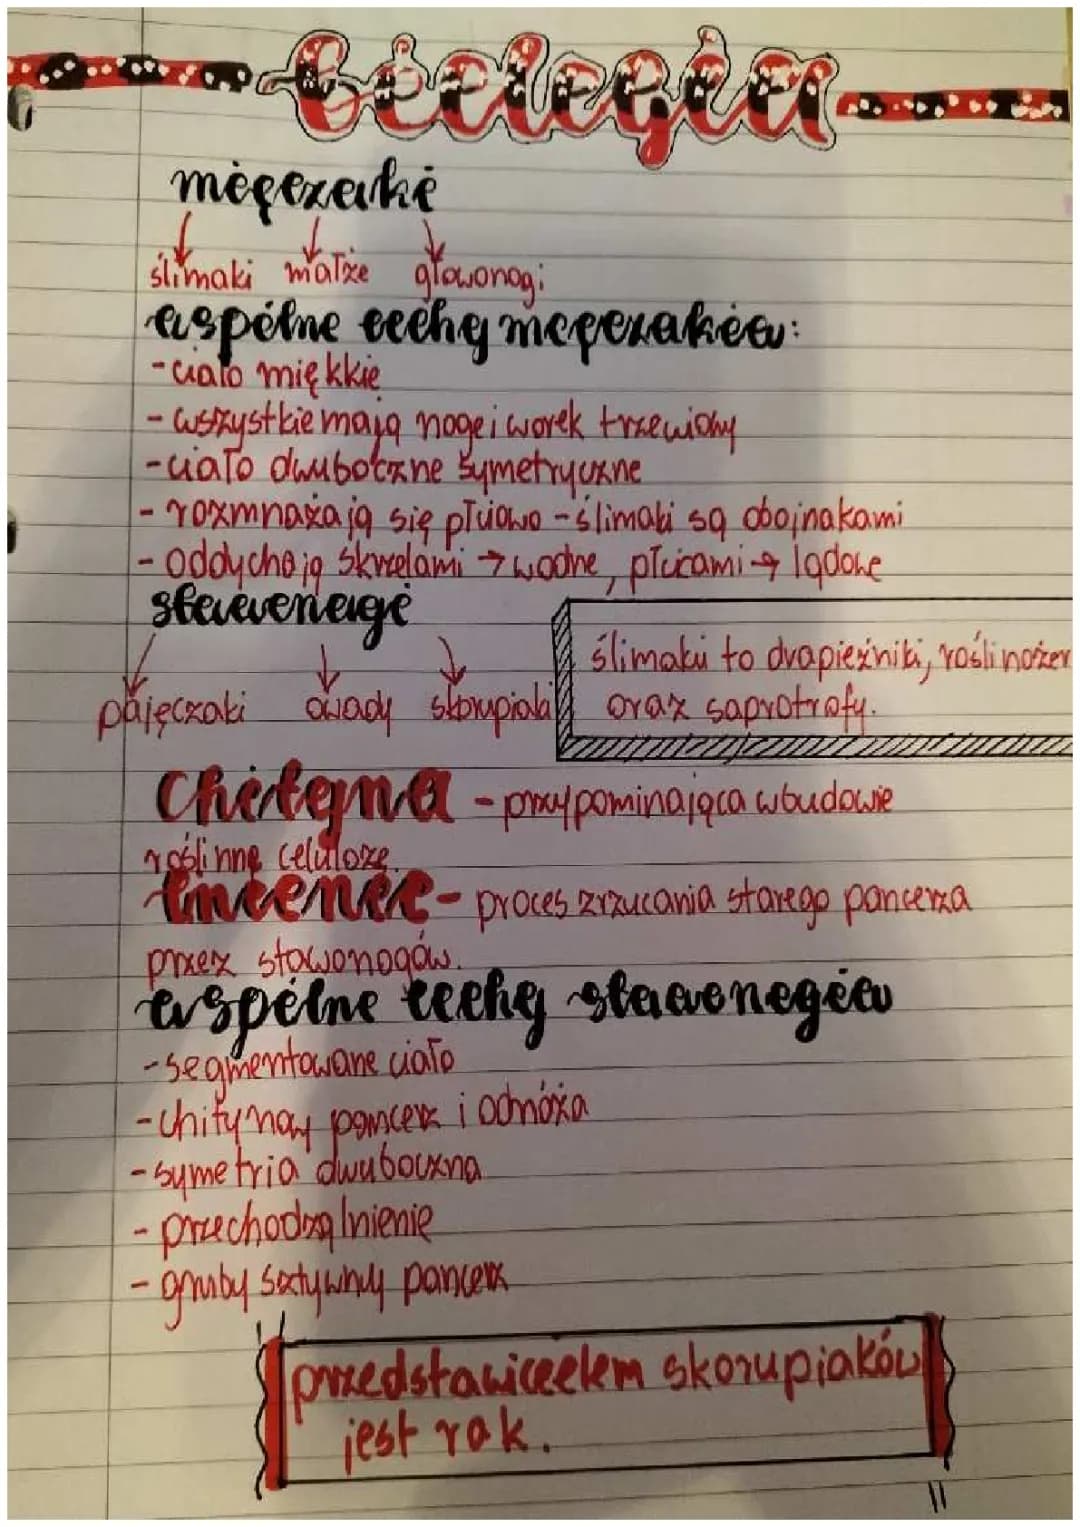 biologia
mięczaki
ślimaki małże głowonogi
wspólne cechy mięczaków:
-ciało miękkie
- wszystkie mają nogę i worek trzewiowy
-ciało dwuboczne symetryczne
- rozmnażają się płciowo - ślimaki są obojnakami
- oddychają skrzelami → wodne, płucami → lądowe
stawonogi
pajęczaki owady skorupiaki
ślimaki to drapieżniki, roślinożer
oraz saprotrofy.
Chityna - przypominająca w budowie
roślinną celulozę.
linienie - proces zrzucania starego pancerza
przez stawonogów.
wspólne cechy stawonogów
-segmentowane ciało
-chitynowy pancerz i odnóża
-symetria dwuboczna
- przechodzą linienie
- gruby sztywny pancerz
przedstawicielem skorupiaków
jest rak.